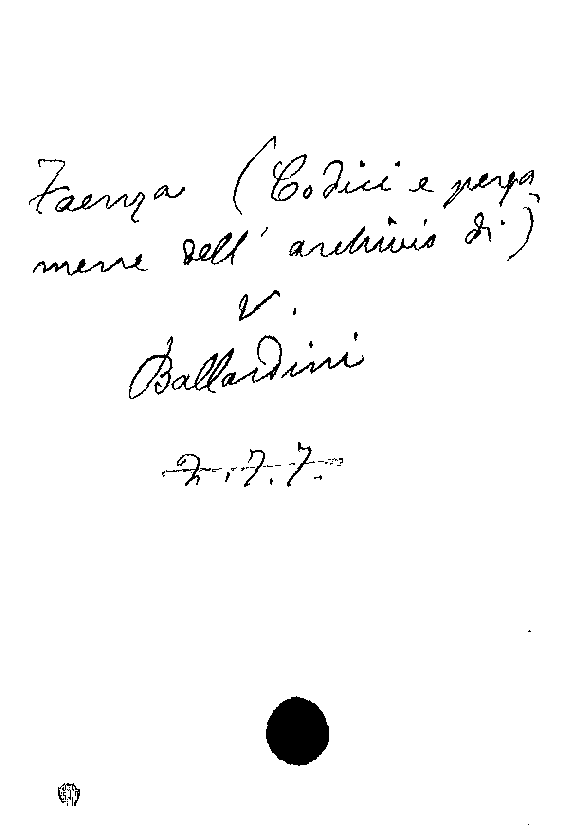 Faenza (Codici e perga
mene dell' archivio di)
V.
Ballardini